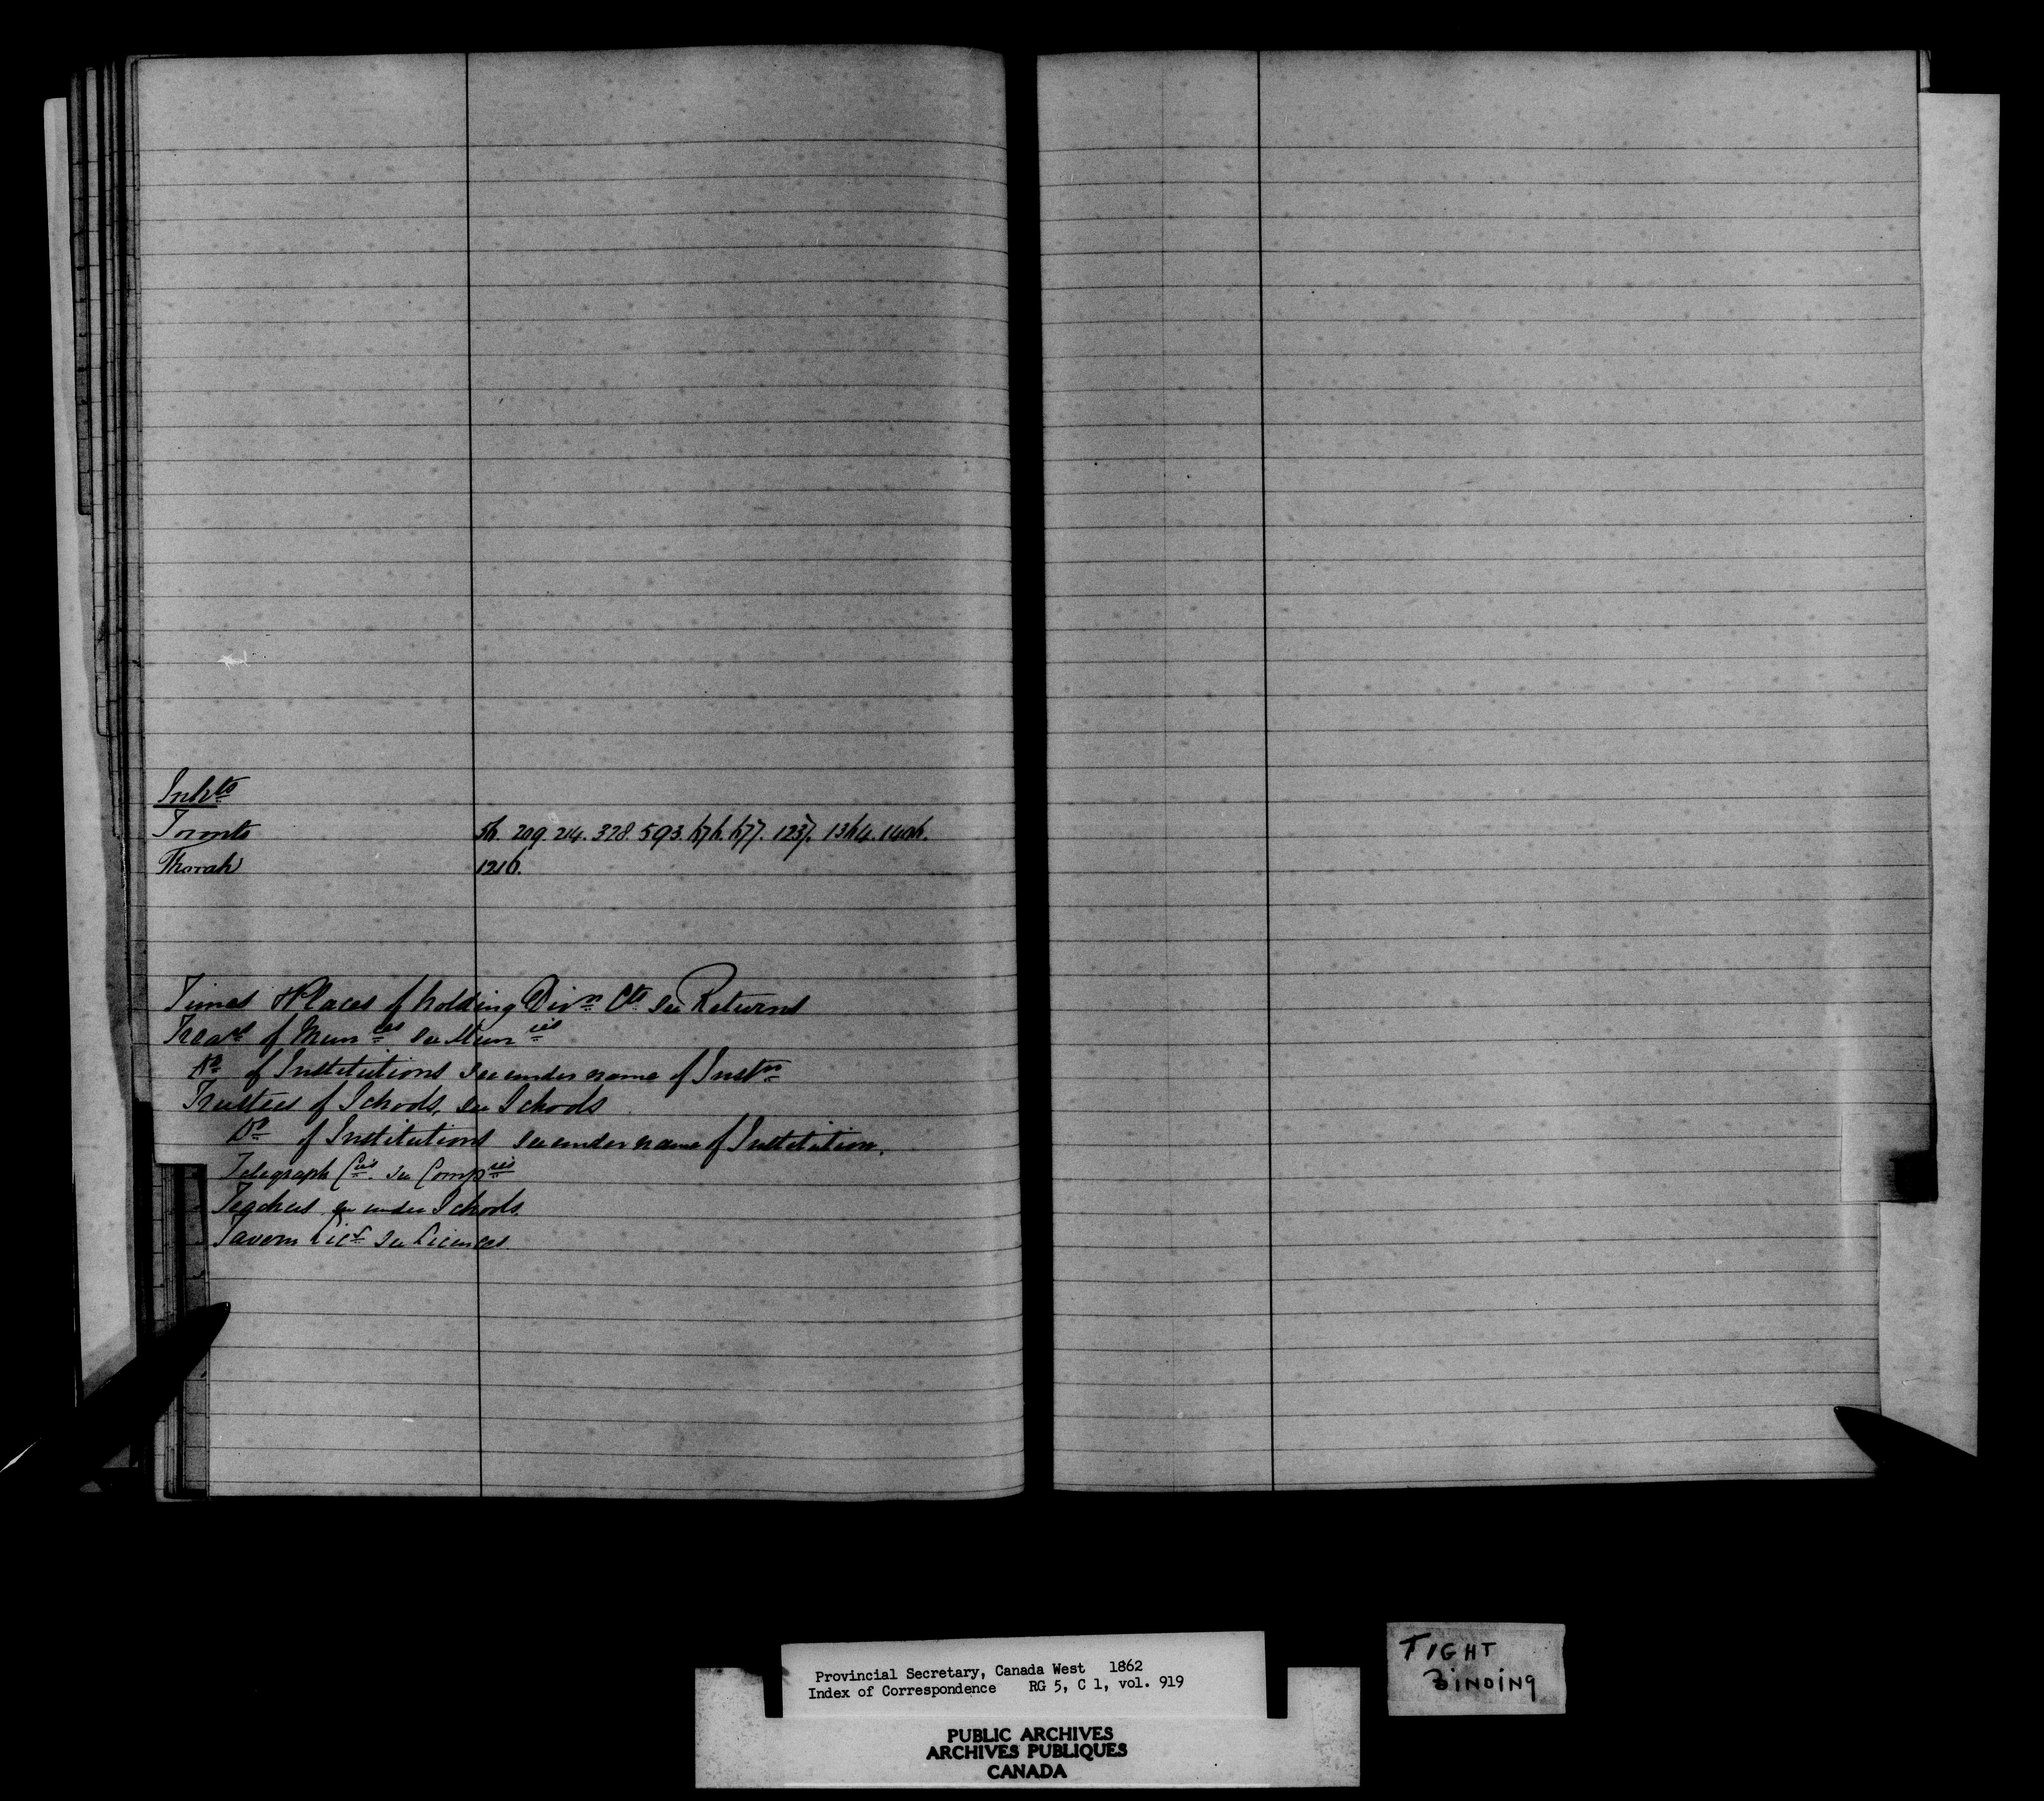 Inhts
Toronto 56. 209. 214. 328. 593. 676. 677. 1237. 1364. 1406.
Thorah 1216.
Times & Places of holding Divn Cts. see Returns
Treasr of Munies see Munies
Do of Institutions see under name of Instn
Trustees of Schools, see Schools
Do of Institutions see under name of Institution.
Telegraph Cies. see Compies
Teachers see under Schools.
Tavern Lics see Licences.
Provincial Secretary, Canada West 1862
Index of Correspondence RG 5, C 1, vol. 919
PUBLIC ARCHIVES
ARCHIVES PUBLIQUES
CANADA
TIGHT
BINDING